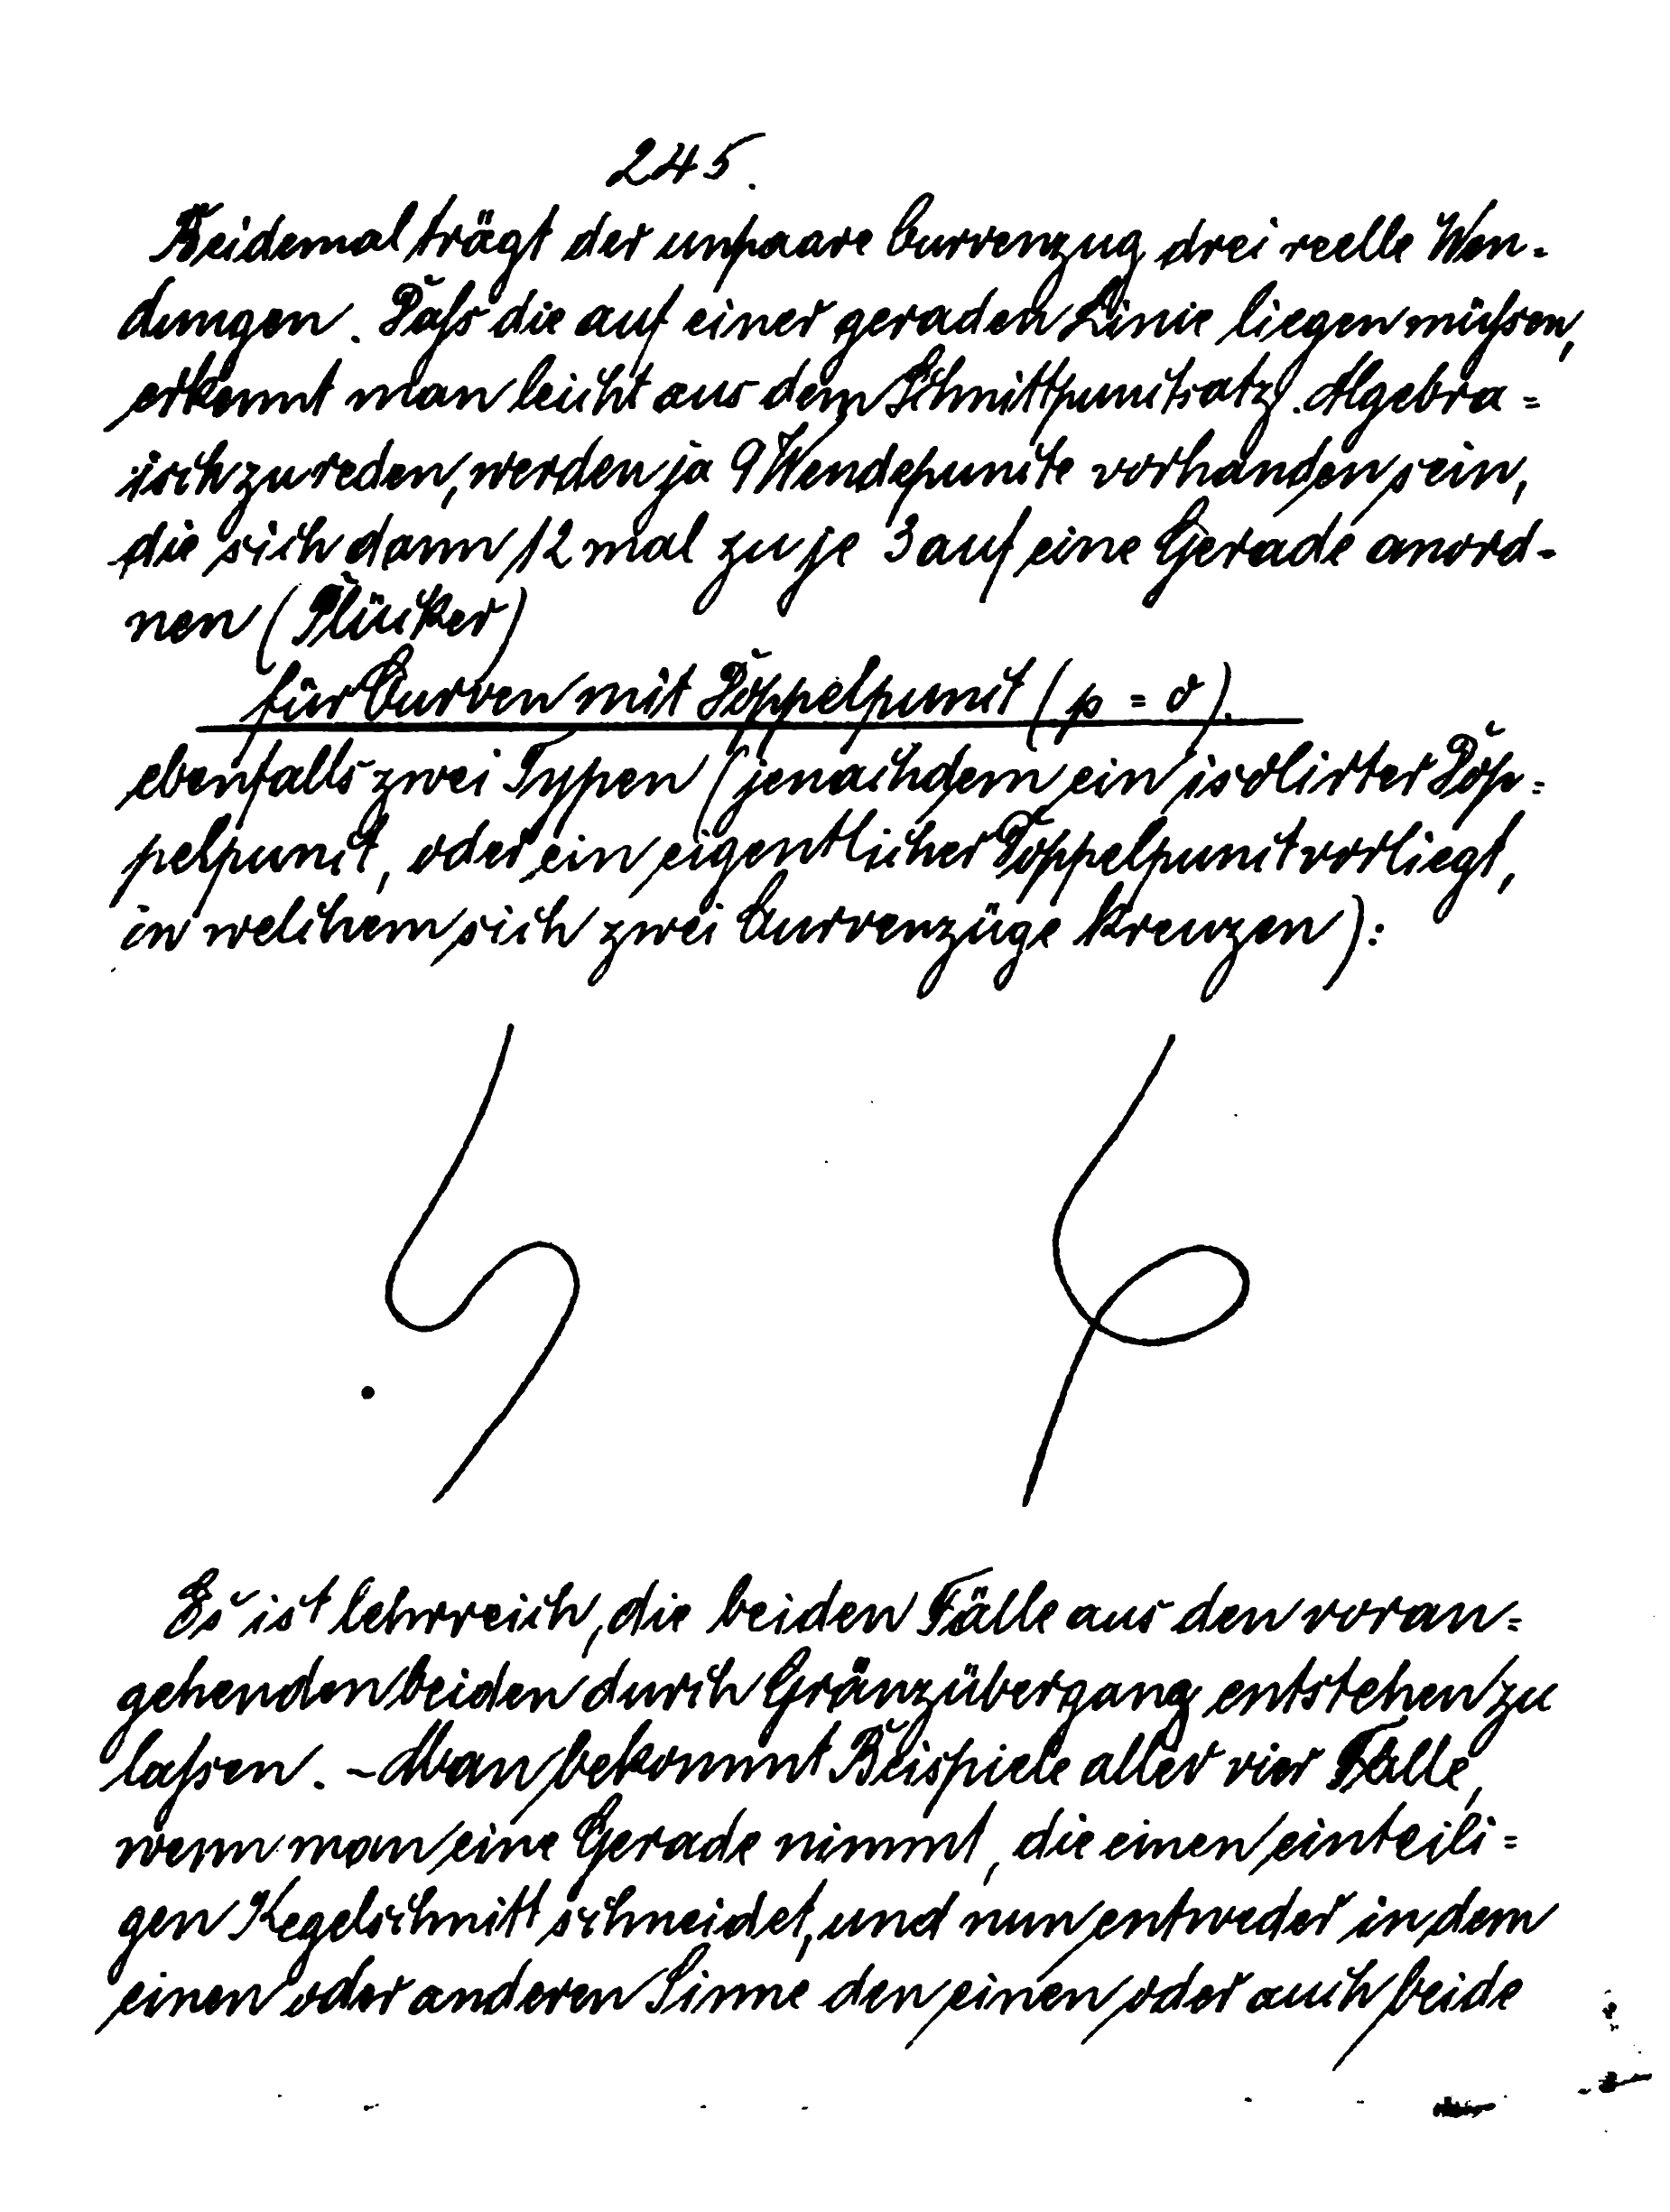 245.
Beidemal trägt der unpaare Curvenzug drei reelle Wen-
dungen. Daſs die auf einer geraden Linie liegen müſsen,
erkennt man leicht aus dem Schnittpunctsatz. Algebra=
isch zu reden, werden ja 9 Wendepuncte vorhanden sein,
die sich dann 12 mal zu je 3 auf eine Gerade anord-
nen (Plücker)
für Curven mit Doppelpunct (p = 0).
ebenfalls zwei Typen (jenachdem ein isolirter Dop=
pelpunct, oder ein eigentlicher Doppelpunct vorliegt,
in welchem sich zwei Curvenzüge kreuzen):
Es ist lehrreich, die beiden Fälle aus den voran=
gehenden beiden durch Gränzübergang entstehen zu
laſsen. – Man bekommt Beispiele aller vier Fälle,
wenn man eine Gerade nimmt, die einen einteili=
gen Kegelschnitt schneidet, und nun entweder in dem
einen oder anderen Sinne den einen oder auch beide